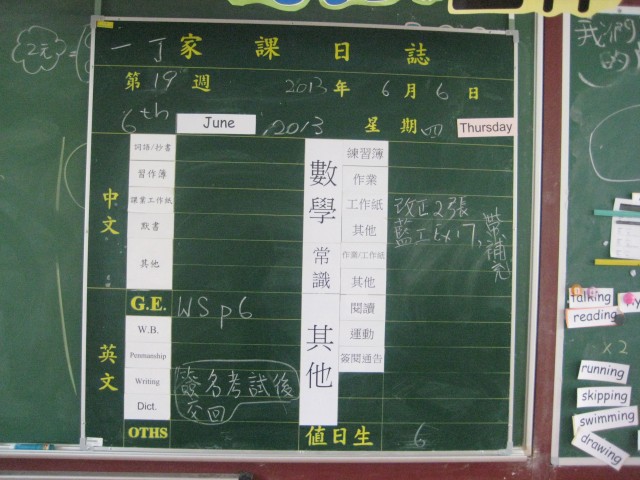 2元
一丁家課日誌
第19週 2013年6月6日
6th June, 2013 星期四 Thursday
中文
詞語/抄書
習作簿
課業工作紙
默書
其他
英文
G.E. WS p6
W.B.
Penmanship
Writing
簽名考試後
交回
Dict.
OTHS
數學
練習簿
作業
工作紙 改正2張
其他 藍工Ex17,
帶補充
常識
作業/工作紙
其他
其他
閱讀
運動
簽閱通告
值日生 6
我們
的
talking
reading
x2
running
skipping
swimming
drawing